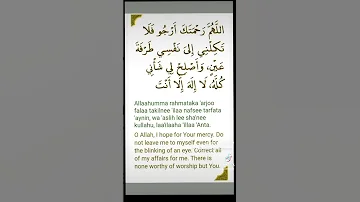 اللَّهُمَّ رَحْمَتَكَ أَرْجُو فَلَا
تَكِلْنِي إِلَىٰ نَفْسِي طَرْفَةَ
عَيْنٍ، وَأَصْلِحْ لِي شَأْنِي
كُلَّهُ، لَا إِلَهَ إِلَّا أَنْتَ
Allaahumma rahmataka 'arjoo
falaa takilnee 'ilaa nafsee tarfata
'aynin, wa 'aslih lee sha'nee
kullahu, laa'ilaaha 'illaa 'Anta.
O Allah, I hope for Your mercy. Do
not leave me to myself even for
the blinking of an eye. Correct all
of my affairs for me. There is
none worthy of worship but You.